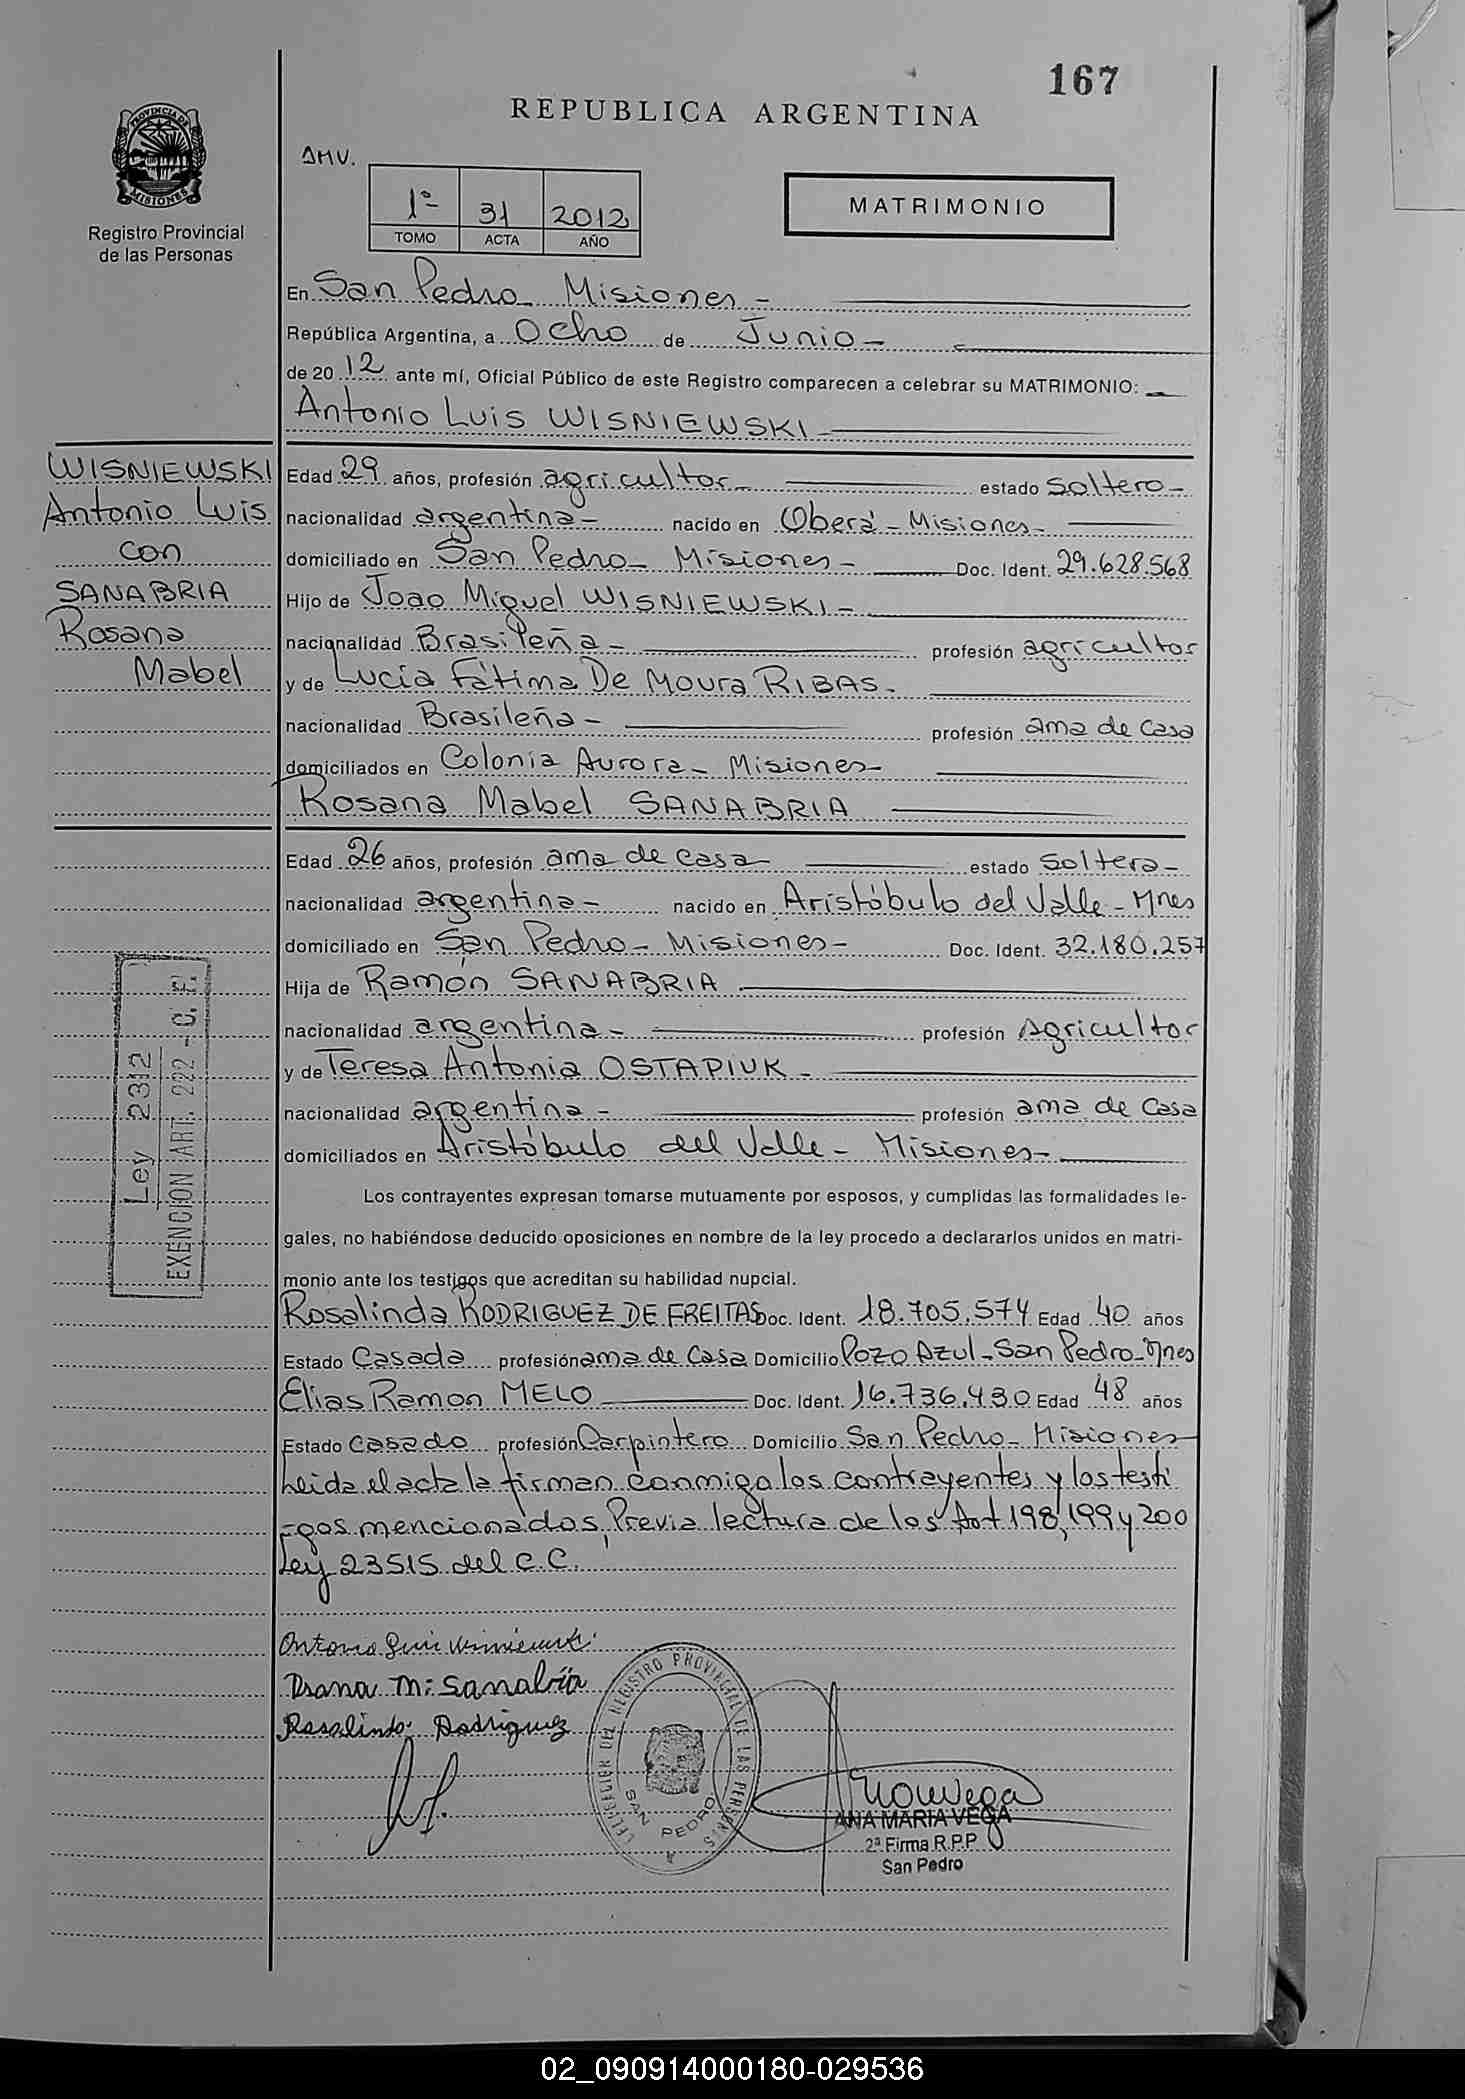 167
REPUBLICA ARGENTINA
PROVINCIA DE
MISIONES
Registro Provincial
de las Personas
AMV.
1º- 31 2012
TOMO ACTA AÑO
MATRIMONIO
En San Pedro Misiones -
República Argentina, a Ocho de Junio -
de 20 12 ante mí, Oficial Público de este Registro comparecen a celebrar su MATRIMONIO:
Antonio Luis WISNIEWSKI
WISNIEWSKI
Antonio Luis
con
SANABRIA
Rosana
Mabel
Edad 29 años, profesión agricultor - estado soltero -
nacionalidad argentina - nacido en Oberá - Misiones -
domiciliado en San Pedro - Misiones - Doc. Ident. 29.628.568
Hijo de Joao Miguel WISNIEWSKI -
nacionalidad Brasileña - profesión agricultor
y de Lucia Fátima De Moura RIBAS -
nacionalidad Brasileña - profesión ama de casa
domiciliados en Colonia Aurora - Misiones
Rosana Mabel SANABRIA
Edad 26 años, profesión ama de casa estado soltera -
nacionalidad argentina - nacido en Aristóbulo del Valle - Mnes
domiciliado en San Pedro - Misiones - Doc. Ident. 32.180.257
Hija de Ramón SANABRIA
nacionalidad argentina - profesión Agricultor
y de Teresa Antonia OSTAPIUK -
nacionalidad argentina - profesión ama de casa
domiciliados en Aristóbulo del Valle - Misiones -
Ley 2312
EXENCION ART. 222 - C. F.
Los contrayentes expresan tomarse mutuamente por esposos, y cumplidas las formalidades le-
gales, no habiéndose deducido oposiciones en nombre de la ley procedo a declararlos unidos en matri-
monio ante los testigos que acreditan su habilidad nupcial.
Rosalinda RODRIGUEZ DE FREITAS Doc. Ident. 18.705.574 Edad 40 años
Estado Casada profesión ama de casa Domicilio Pozo Azul - San Pedro - Mnes
Elias Ramon MELO Doc. Ident. 16.736.430 Edad 48 años
Estado casado profesión Carpintero Domicilio San Pedro - Misiones
Leida el acta la firman conmigo los contrayentes y los testi
-gos mencionados, Previa lectura de los Art 198, 199 y 200
Ley 23515 del C.C.
Antonio Luis Wisniewski
Rosana M. Sanabria
Rosalinda Rodriguez
DEL REGISTRO PROVINCIAL DE LAS PERSONAS
SAN PEDRO
ANA MARIA VEGA
2ª Firma R.P.P
San Pedro
02_090914000180-029536